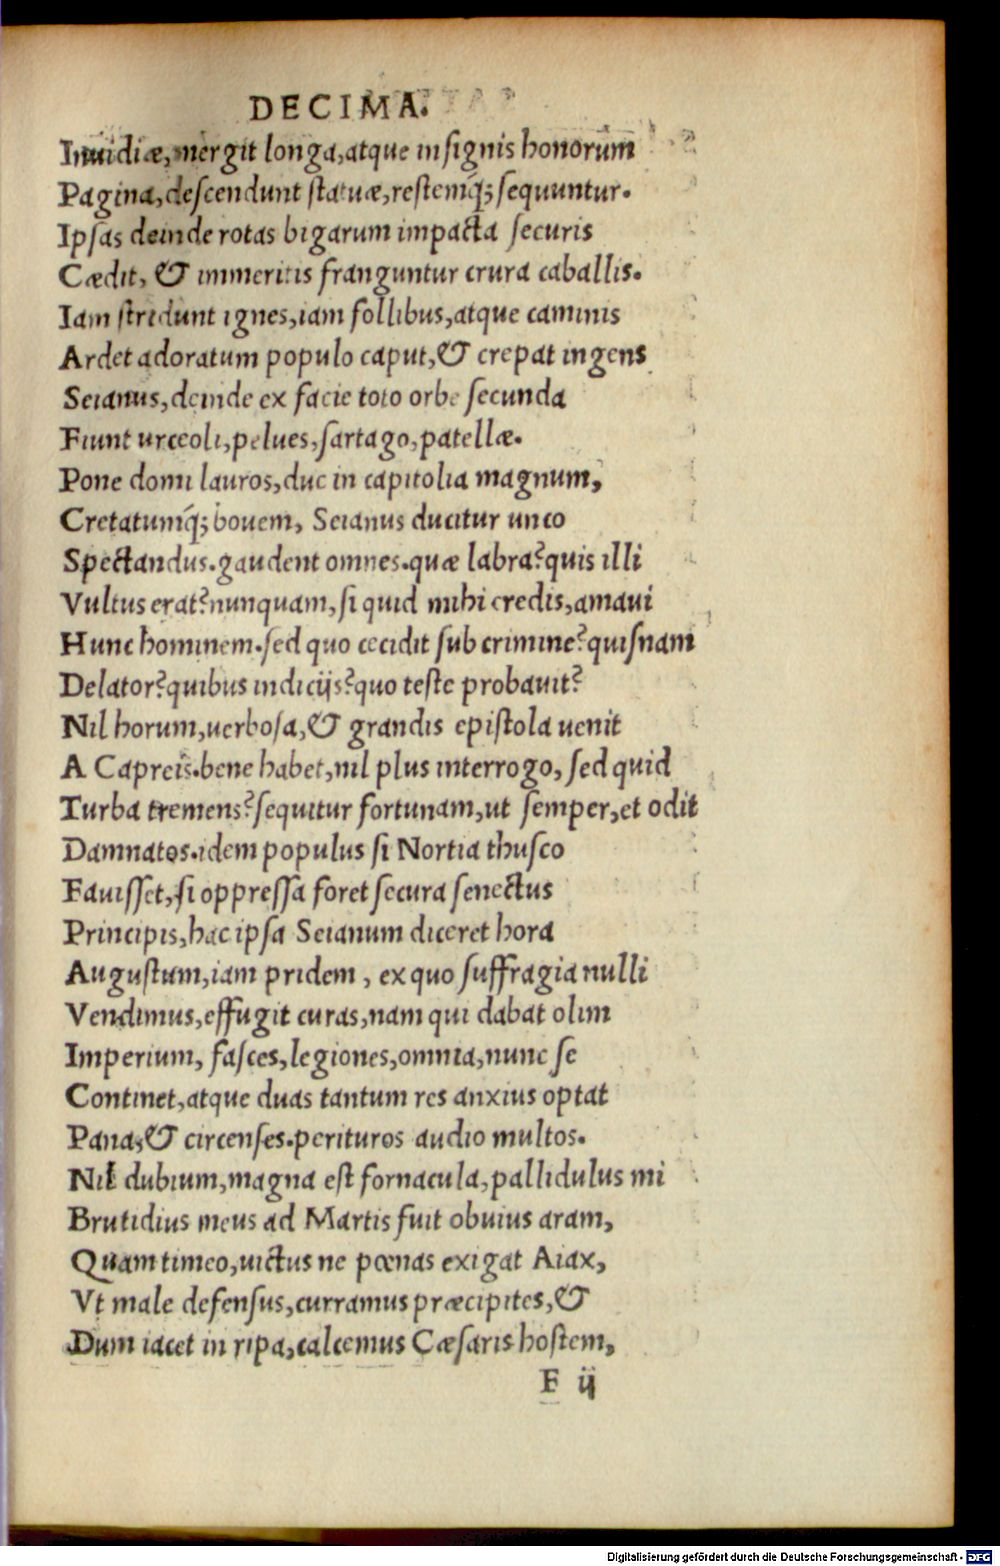 DECIMA.
Inuidiæ, mergit longa, atque insignis honorum
Pagina, descendunt statuæ, restemq́; sequuntur.
Ipsas deinde rotas bigarum impacta securis
Cædit, & immeritis franguntur crura caballis.
Iam stridunt ignes, iam follibus, atque caminis
Ardet adoratum populo caput, & crepat ingens
Seianus, deinde ex facie toto orbe secunda
Fiunt urceoli, pelues, sartago, patellæ.
Pone domi lauros, duc in capitolia magnum,
Cretatumq́; bouem, Seianus ducitur unco
Spectandus. gaudent omnes. quæ labra? quis illi
Vultus erat? nunquam, si quid mihi credis, amaui
Hunc hominem. sed quo cecidit sub crimine? quisnam
Delator? quibus indicijs? quo teste probauit?
Nil horum, uerbosa, & grandis epistola uenit
A Capreis. bene habet, nil plus interrogo, sed quid
Turba tremens? sequitur fortunam, ut semper, et odit
Damnatos. idem populus si Nortia thusco
Fauisset, si oppressa foret secura senectus
Principis, hac ipsa Seianum diceret hora
Augustum, iam pridem, ex quo suffragia nulli
Vendimus, effugit curas, nam qui dabat olim
Imperium, fasces, legiones, omnia, nunc se
Continet, atque duas tantum res anxius optat
Pana, & circenses. perituros audio multos.
Nil dubium, magna est fornacula, pallidulus mi
Brutidius meus ad Martis fuit obuius aram,
Quam timeo, uictus ne pœnas exigat Aiax,
Vt male defensus, curramus præcipites, &
Dum iacet in ripa, calcemus Cæsaris hostem,
F ij
Digitalisierung gefördert durch die Deutsche Forschungsgemeinschaft - DFG